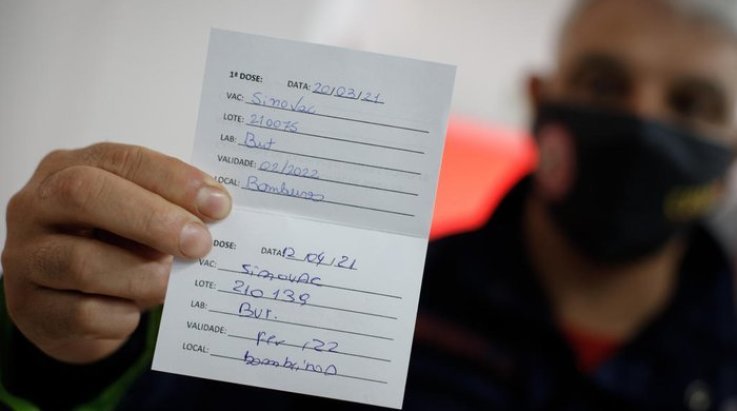 1ª DOSE: DATA: 20/03/21
VAC: Sinovac
LOTE: 210075
LAB: But
VALIDADE: 02/2022
LOCAL: Bombeiros
DOSE: DATA: 12/04/21
VAC: Sinovac
LOTE: 210139
LAB: But.
VALIDADE: fev, 22
LOCAL: bombeiros